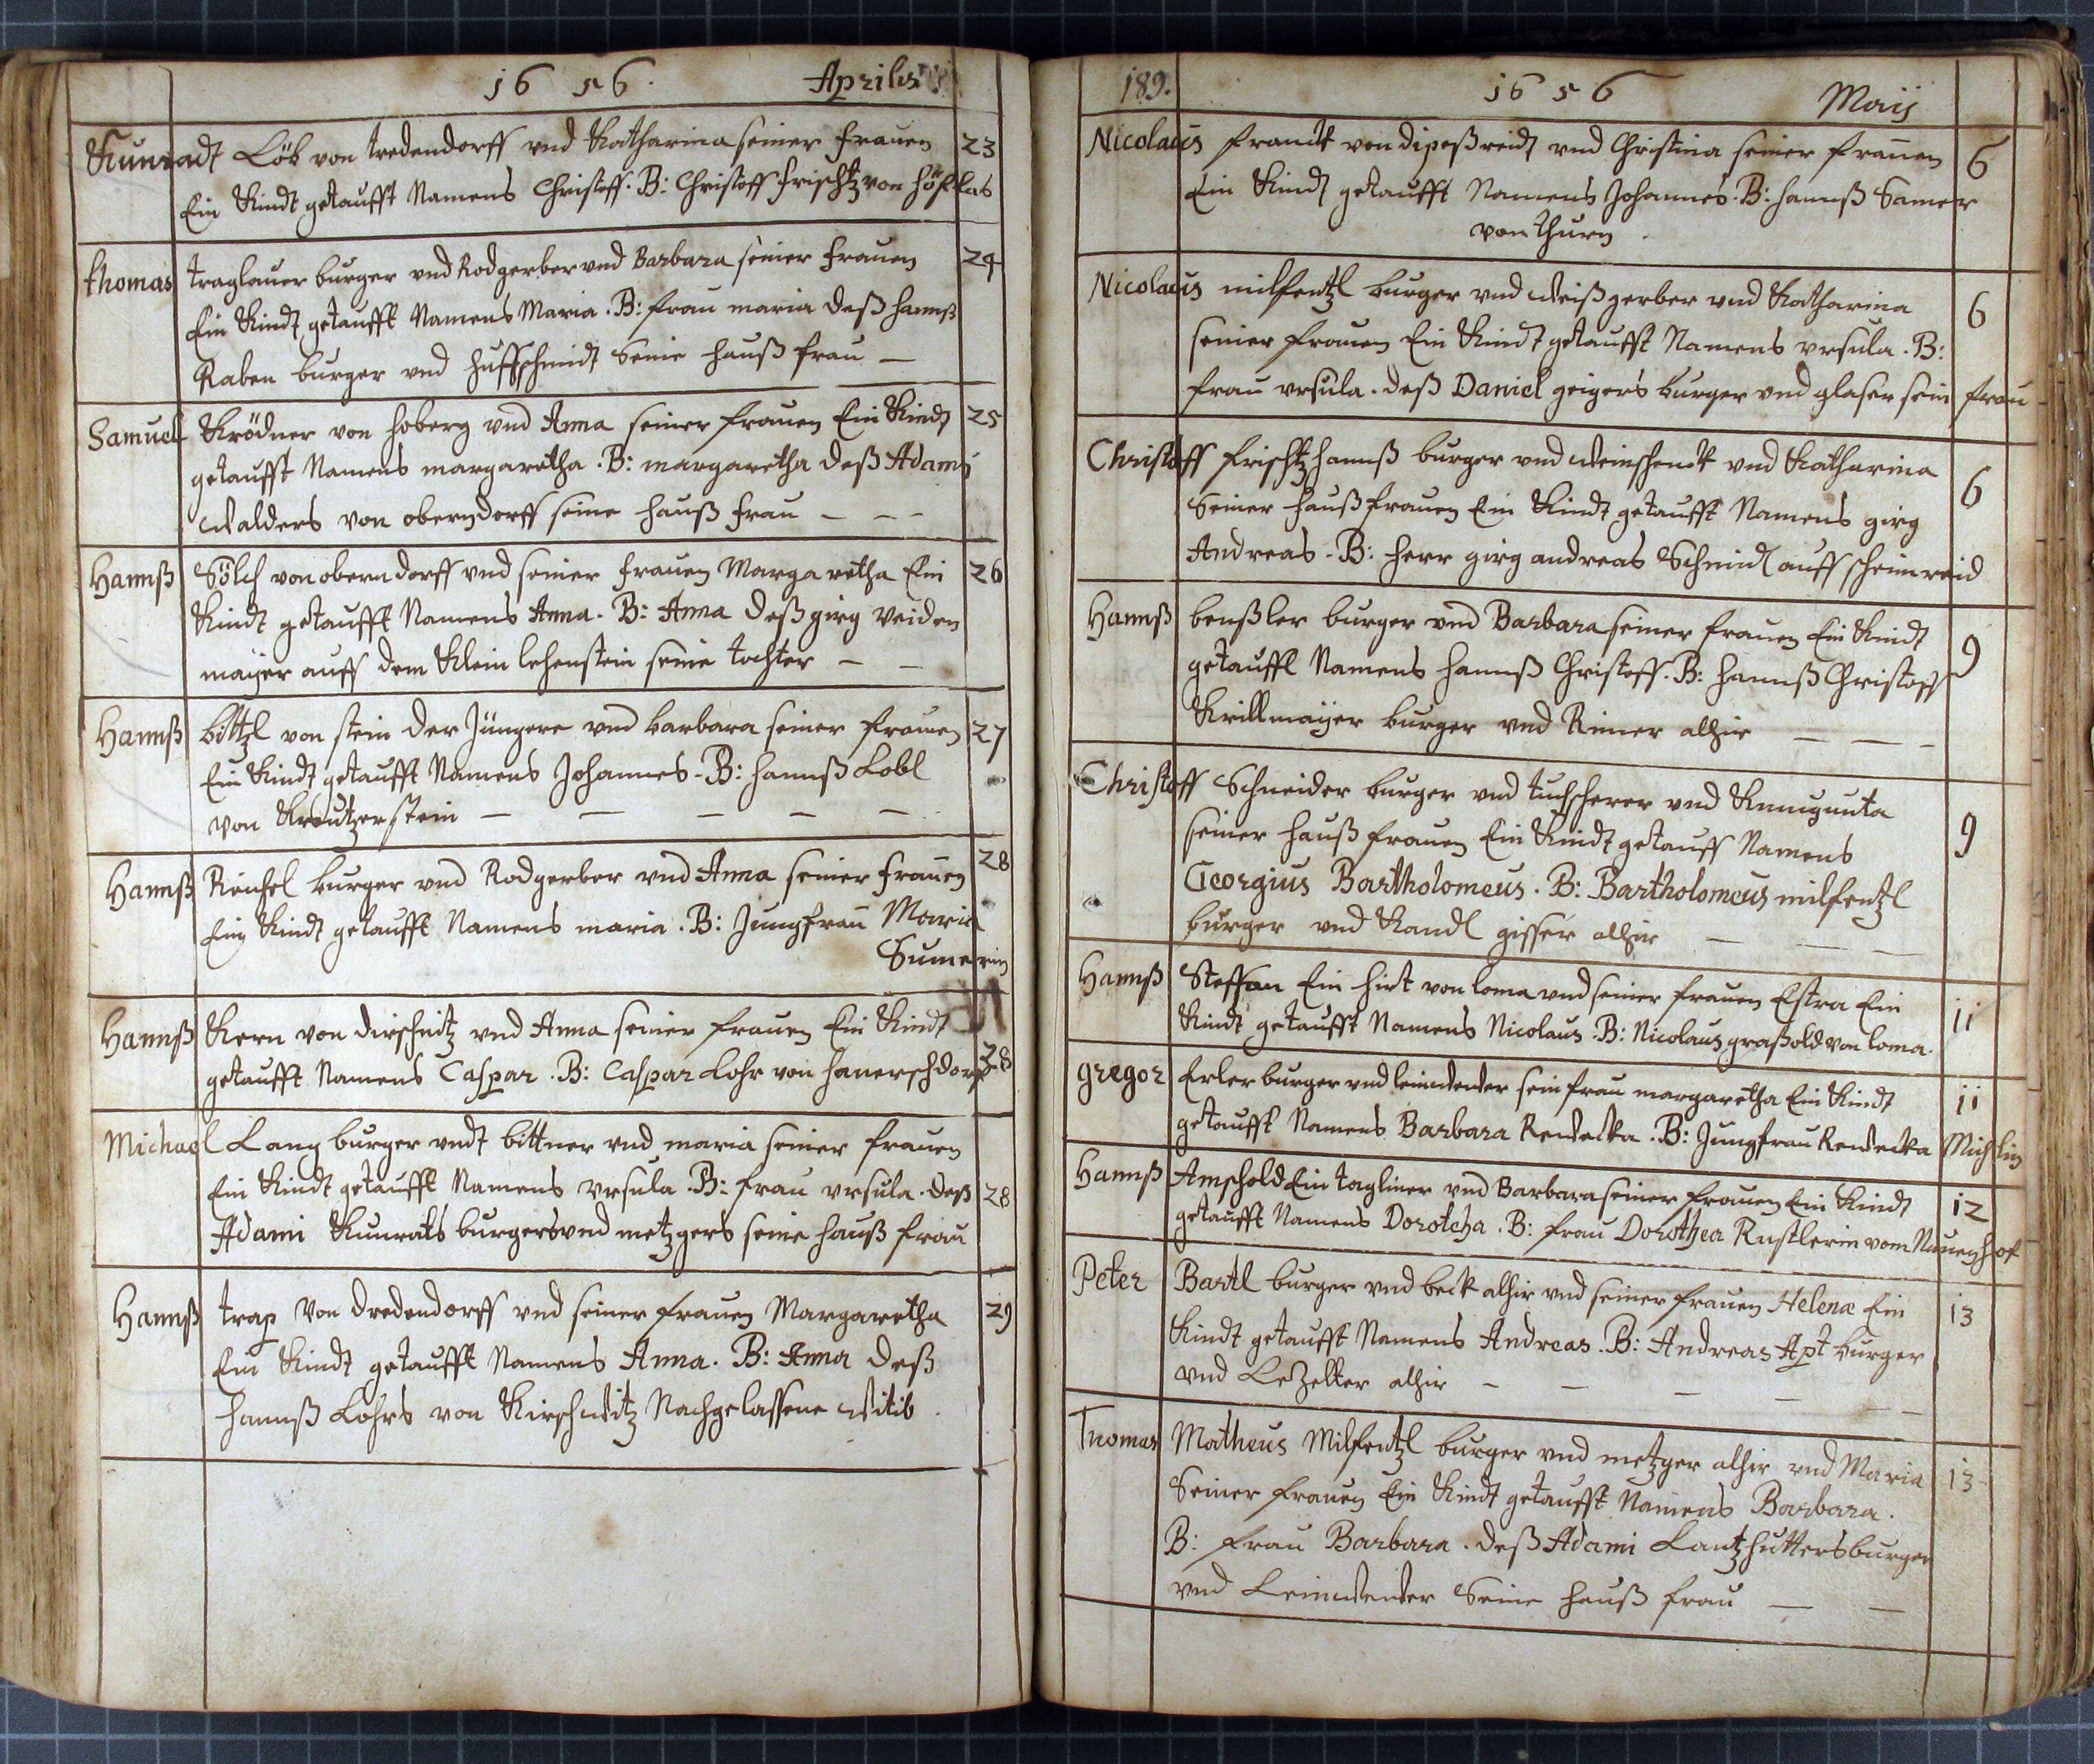 1656. Aprilis
Kunradt Löb von tredendorff vnd Katharina seiner frauen 23
Ein Kindt getaufft Namens Christoff. B: Christoff frischtz von höflas
thomas traglauer burger vnd Rodgerber vnd Barbara seiner frauen 24
Ein Kindt getaufft Namens Maria. B: frau maria deß hannß
Raben burger vnd huffschmidt seine hauß frau –
Samuel Krödner von hoberg vnd Anna seiner frauen Ein Kindt 25
getaufft Namens margaretha. B: margaretha deß Adami
walders von oberndorff seine hauß frau – – –
Hannß Sölch von oberndorff vnd seiner frauen Margaretha Ein 26
Kindt getaufft Namens Anna. B: Anna deß girg Veiden
maÿer auff dem Klein lehenstein seine tochter – –
Hannß bittzl von stein der Jüngere vnd barbara seiner frauen 27
Ein Kindt getaufft Namens Johannes. B: hannß Lobl
von Kreutzerstein – – – – –
Hannß Reichel burger vnd Rodgerber vnd Anna seiner frauen 28
Ein Kindt getaufft Namens maria. B: Jungfrau Maria
Sumerin
Hannß Kern von dirschnitz vnd Anna seiner frauen Ein Kindt
getaufft Namens Caspar. B: Caspar Lohr von hanerschdorf 28
Michael Lang burger vndt bittner vnd maria seiner frauen
Ein Kindt getaufft Namens vrsula. B: frau vrsula. deß 28
Adami Kunrats burgers vnd metzgers seine hauß frau
Hannß trap Von dredendorff vnd seiner frauen Margaretha 29
Ein Kindt getaufft Namens Anna. B: Anna deß
hannß Lohrs von Kirschwitz Nachgelassene witib.
189. 1656 Maij
Nicolaus franck von dipeßreidt vnd Christina seiner frauen 6
Ein Kindt getaufft Namens Johannes. B: hannß Samer
von thurn.
Nicolaus milfentzl burger vnd weißgerber vnd Katharina 6
seiner frauen Ein Kindt getaufft Namens vrsula. B:
frau vrsula. deß Daniel geigers burger vnd glaser sein frau
Christoff frischtz hannß burger vnd weinschenck vnd Katharina 6
Seiner haußfrauen Ein Kindt getaufft Namens girg
Andreas. B: herr girg andreas Schmidl auff scheinreid
Hannß benßler burger vnd Barbara seiner frauen Ein Kindt 9
getaufft Namens hannß Christoff. B: hannß Christoff
Krillmaÿer burger vnd Rimer alhir – – –
Christoff Schneider burger vnd tuchscherer vnd Kunigunta 9
seiner hauß frauen Ein Kindt getauff Namens
Georgius Bartholomeus. B: Bartholomeus milfentzl
burger vnd Kandl gisser alhir – – –
Hannß Steffan Ein hirt von loma vnd seiner frauen Estra Ein 11
Kindt getaufft Namens Nicolaus. B: Nicolaus graßold von loma.
gregor Erler burger vnd leinweder sein frau margaretha Ein Kindt 11
getaufft Namens Barbara Rewecka. B: Jungfrau Rewecka Michlin
Hannß Amschold Ein tagliner vnd Barbara seiner frauen Ein Kindt 12
getaufft Namens Doroteha. B: frau Dorothea Rustlerin vom Nauenhof
Peter Bartl burger vnd beck alhir vnd seiner frauen Helena Ein 13
Kindt getaufft Namens Andreas. B: Andreas Apt burger
vnd LeZelter alhir – – – – –
Thomas Matheus Milfentzl burger vnd metzger alhir vnd Maria 13
Seiner frauen Ein Kindt getaufft Namens Barbara.
B: frau Barbara. deß Adami Lantzhutters burger
vnd Leinweder Seine hauß frau – –